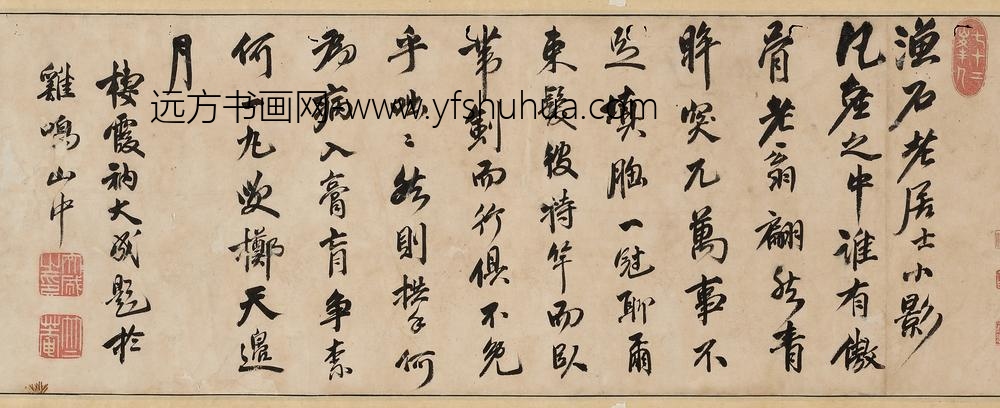 漁石老居士小影
凡塵之中誰有傲
骨老翁翩然青
眸突兀萬事不
足填胸一冠聊爾
束髮彼持竿而臥
帶劍而行俱不免
乎 然則拱手何
為病入膏肓爭柰
何 擲天邊
月
棲霞衲大成題於
雞鳴山中
远方书画网www.yfshuhua.com